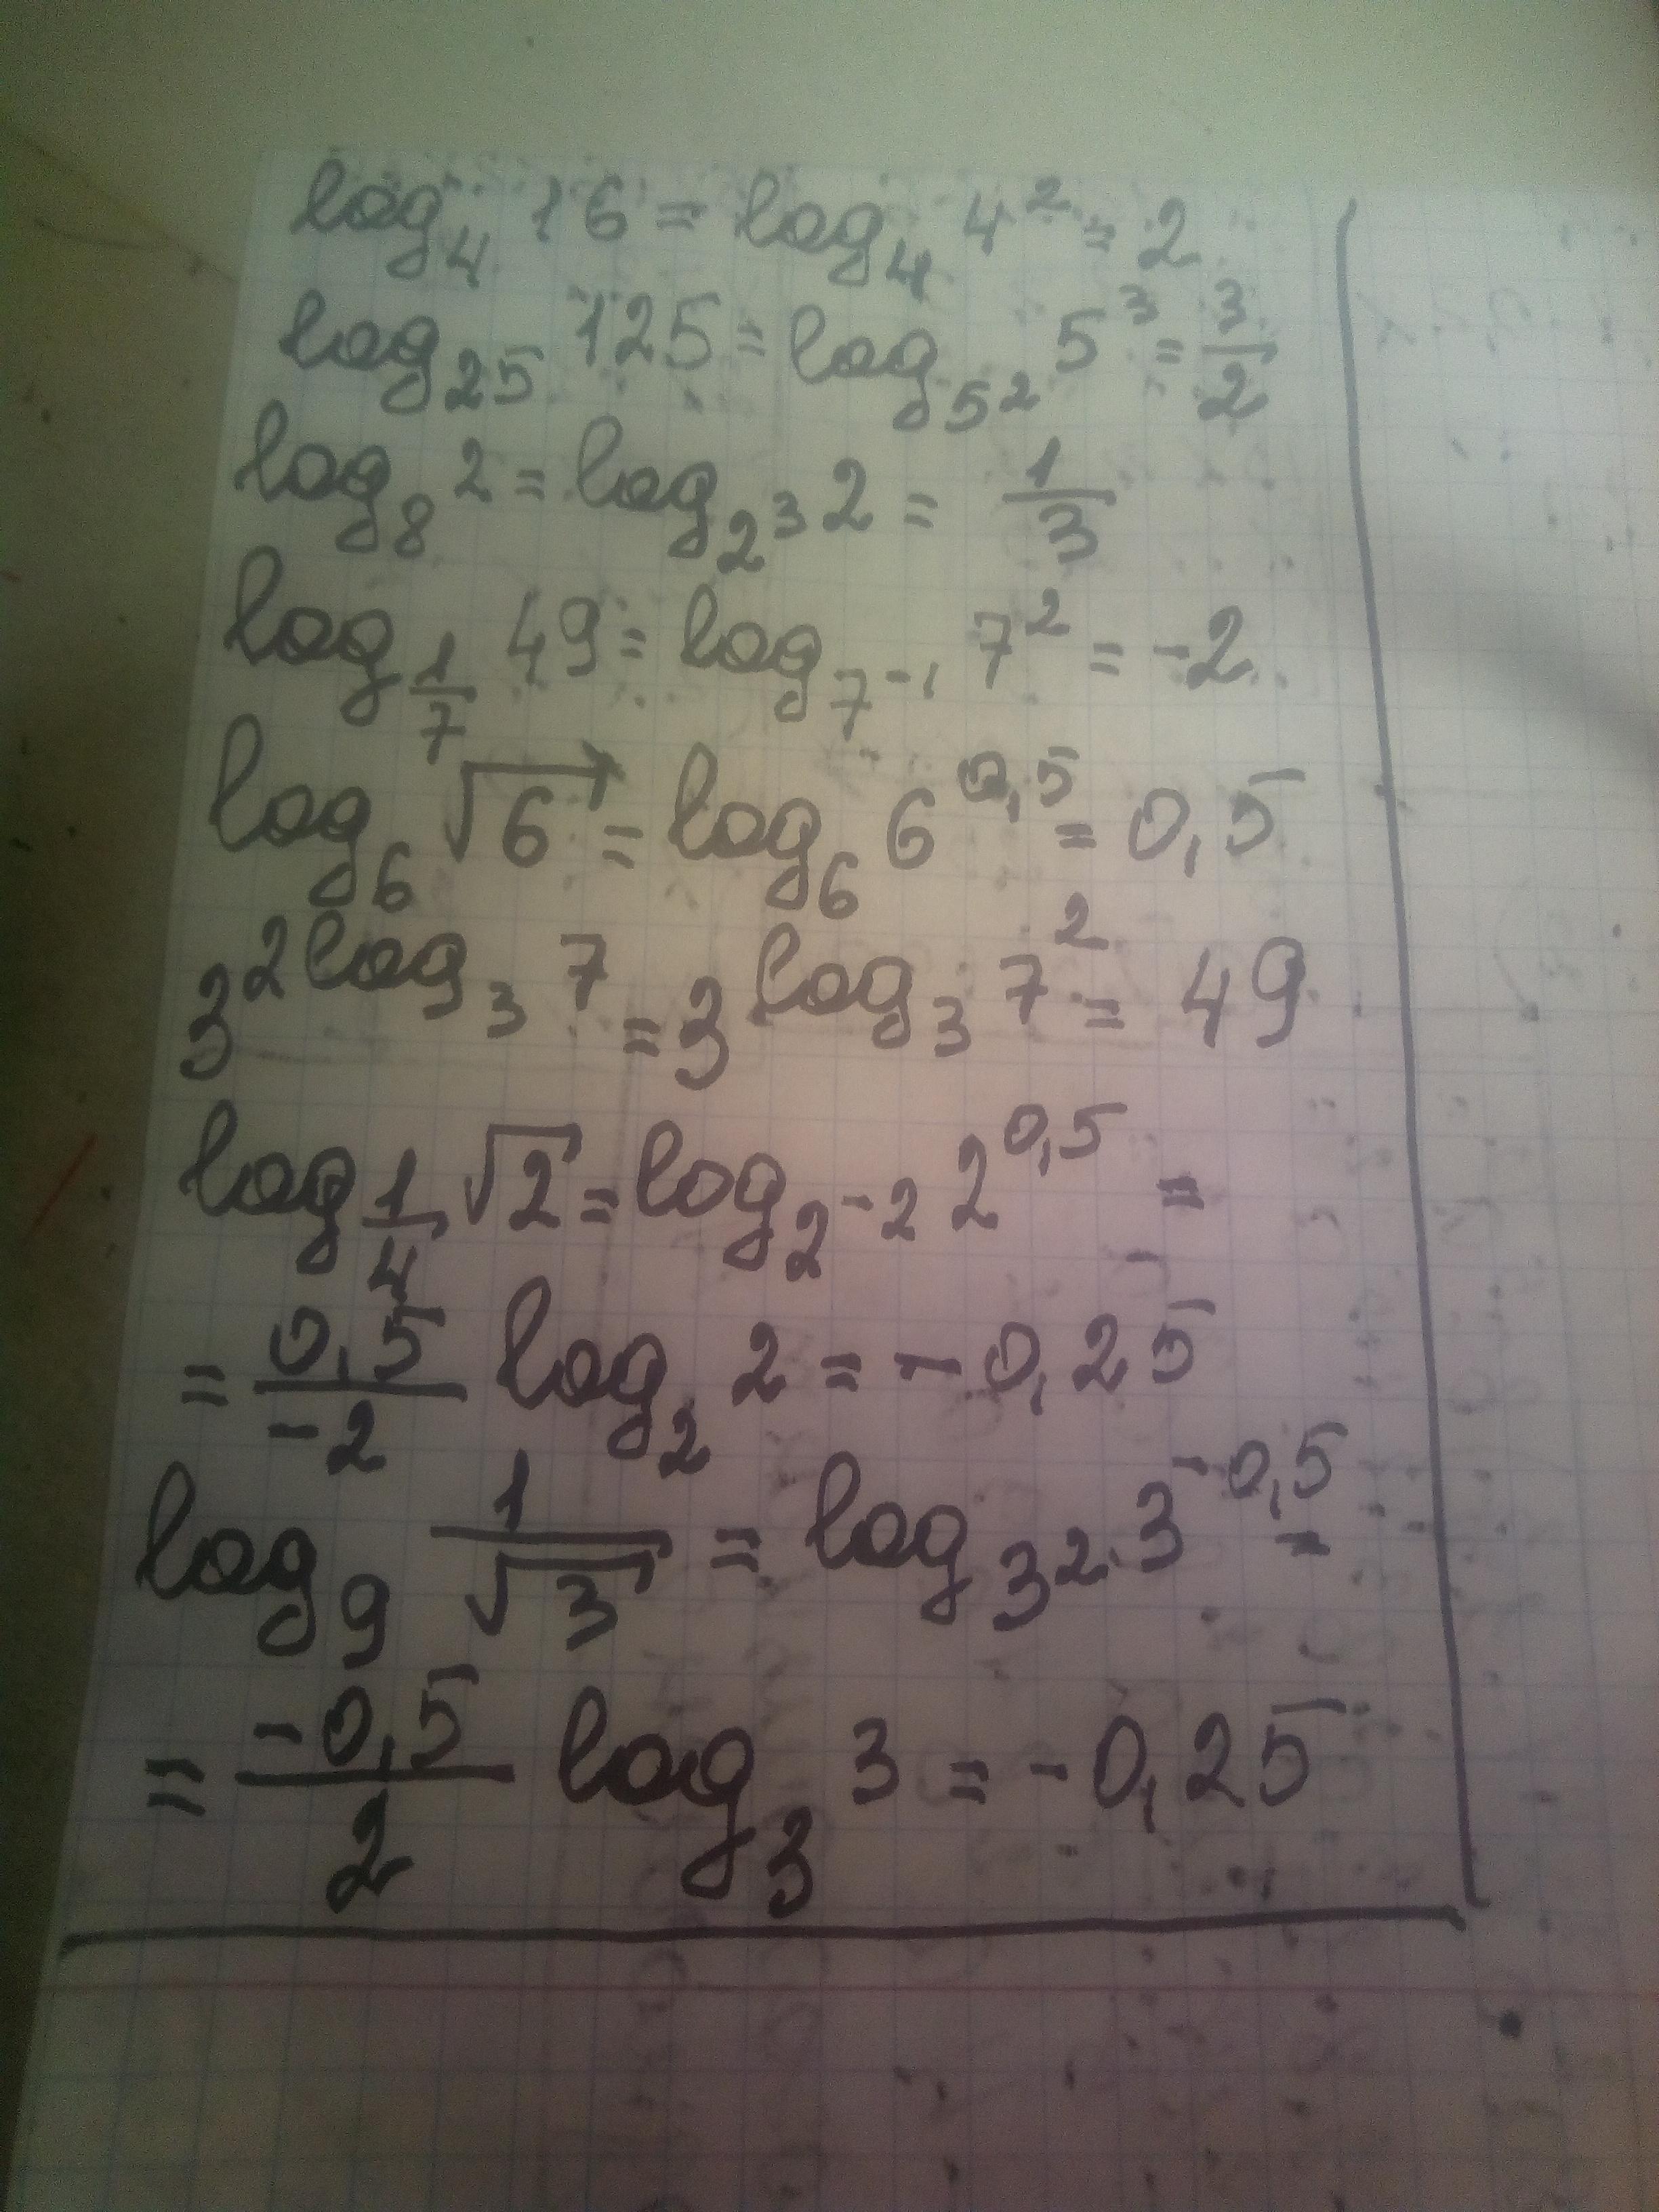 log₄ 16 = log₄ 4² = 2
log₂₅ 125 = log_{5²} 5³ = 3/2
log₈ 2 = log_{2³} 2 = 1/3
log_{1/7} 49 = log_{7⁻¹} 7² = -2
log₆ √6 = log₆ 6^{0,5} = 0,5
3^{2log₃ 7} = 3^{log₃ 7²} = 49
log_{1/4} √2 = log_{2⁻²} 2^{0,5} =
= 0,5/-2 log₂ 2 = -0,25
log₉ 1/√3 = log_{3²} 3^{-0,5} =
= -0,5/2 log₃ 3 = -0,25